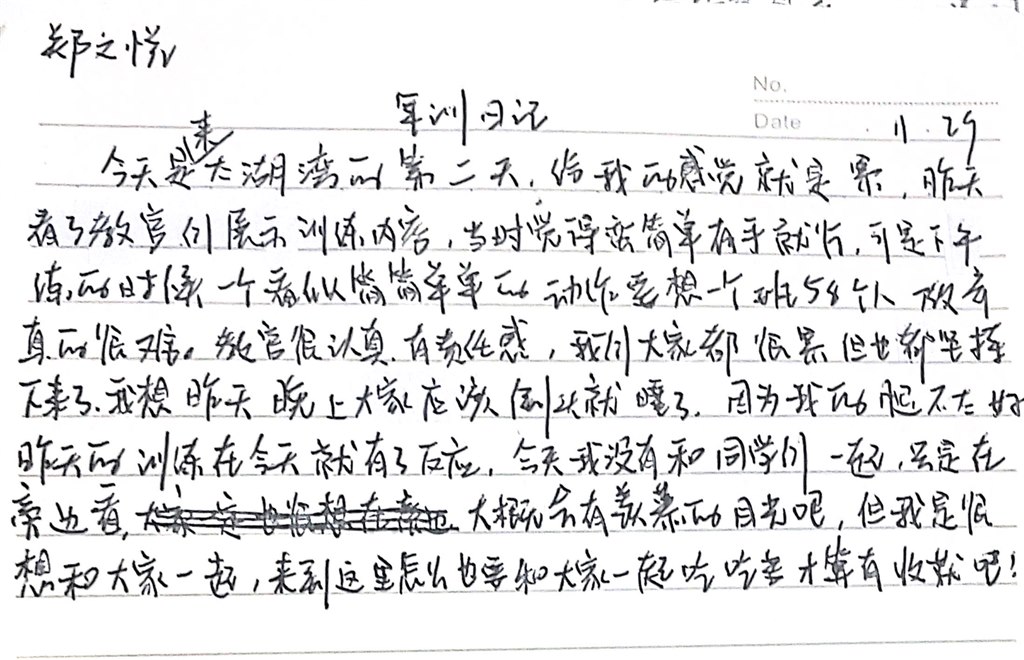 郑文悦
军训日记
No.
Date 11.29
今天是来太湖湾的第二天，给我的感觉就是累，昨天
看了教官们展示训练内容，当时觉得蛮简单有手就行，可是下午
练的时候一个看似简简单单的动作要想一个班58个人做齐
真的很难。教官很认真，有责任感，我们大家都很累但也都坚持
下来了，我想昨天晚上大家应该倒头就睡了。因为我的腿不太好
昨天的训练在今天就有了反应，今天我没有和同学们一起，只是在
旁边看，大概会有羡慕的目光吧，但我是很
想和大家一起，来到这里怎么也要和大家一起吃吃苦才算有收获吧！